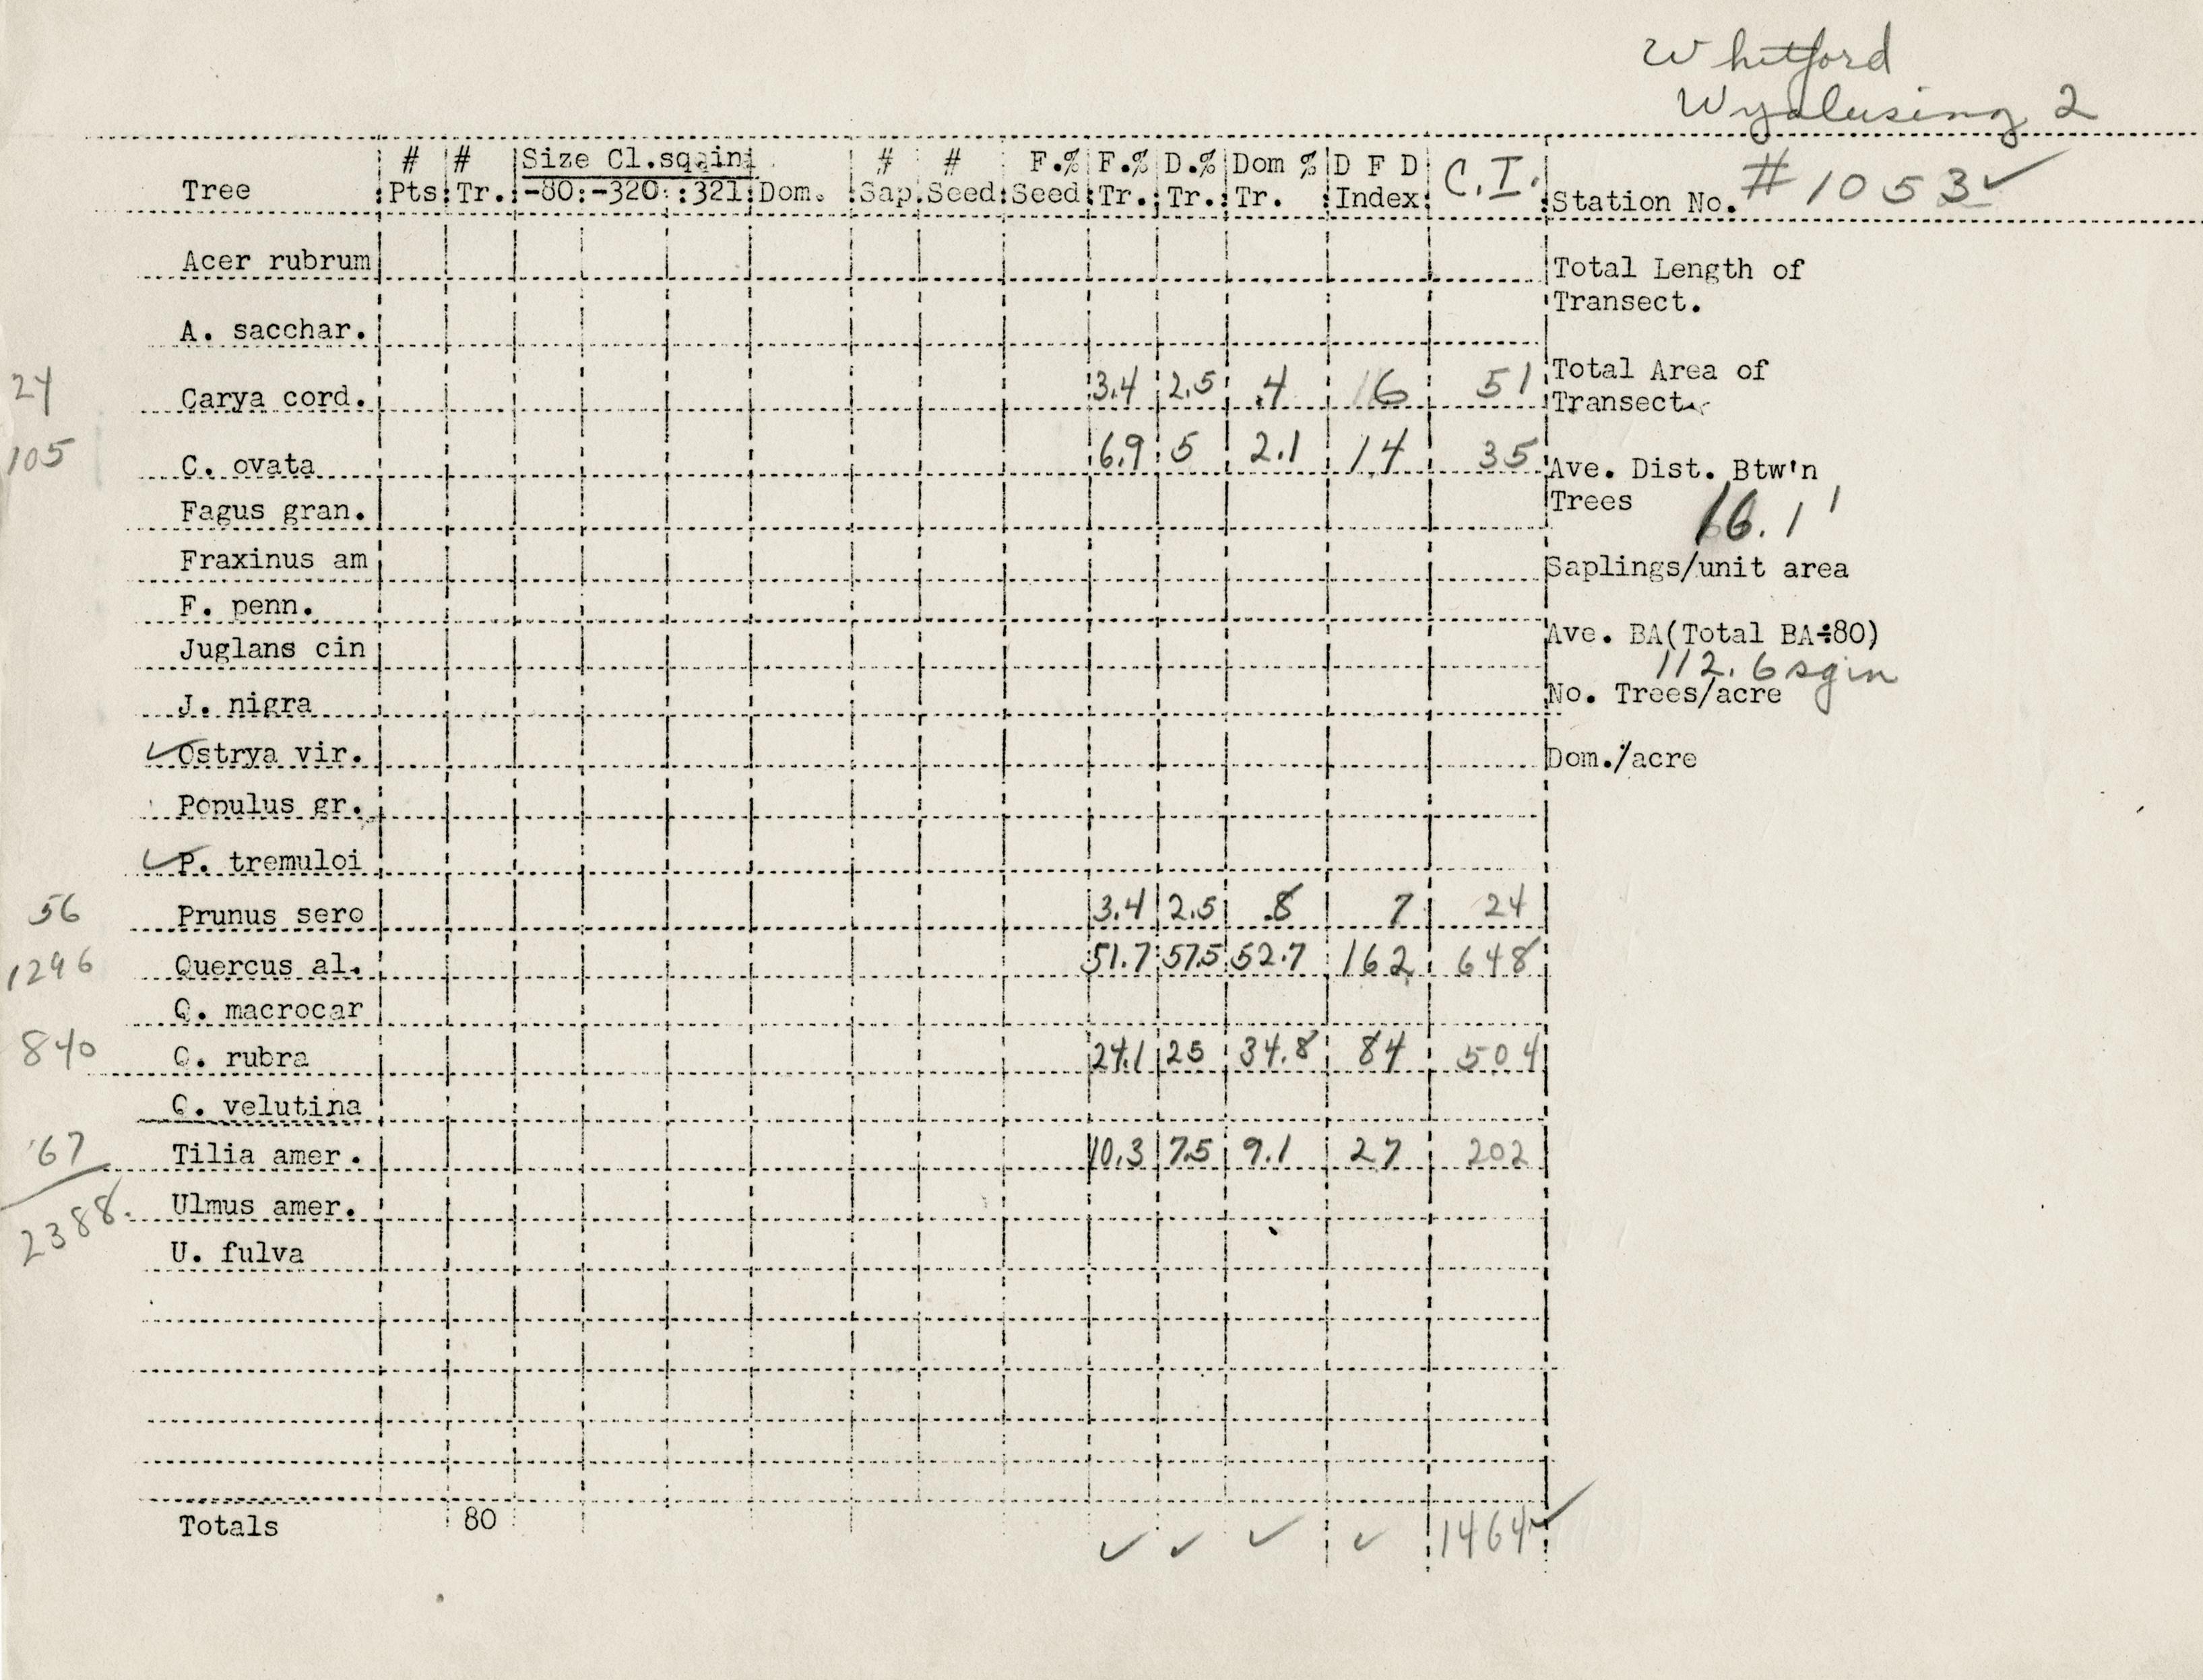 Whitford
Wyalusing 2
Tree # Pts # Tr. Size Cl.sqain -80 -320 321 Dom. # Sap. # Seed F.% Seed F.% Tr. D.% Tr. Dom % Tr. D F D Index C.I. Station No. #1053✓
Acer rubrum
Total Length of
Transect.
A. sacchar.
24 Carya cord. 3.4 2.5 .4 6 51
Total Area of
Transect.
105 C. ovata 6.9 5 2.1 14 35
Ave. Dist. Btw'n
Trees 16.1'
Fagus gran.
Fraxinus am
Saplings/unit area
F. penn.
Juglans cin
Ave. BA(Total BA÷80)
112.6 sqin
J. nigra
No. Trees/acre
✓ Ostrya vir.
Dom./acre
Populus gr.
✓ P. tremuloi
56 Prunus sero 3.4 2.5 .8 7 24
1296 Quercus al. 51.7 57.5 52.7 162 648
Q. macrocar
840 Q. rubra 24.1 25 34.8 84 504
Q. velutina
67 Tilia amer. 10.3 7.5 9.1 27 202
2388. Ulmus amer.
U. fulva
Totals 80 ✓ ✓ ✓ ✓ 1464✓